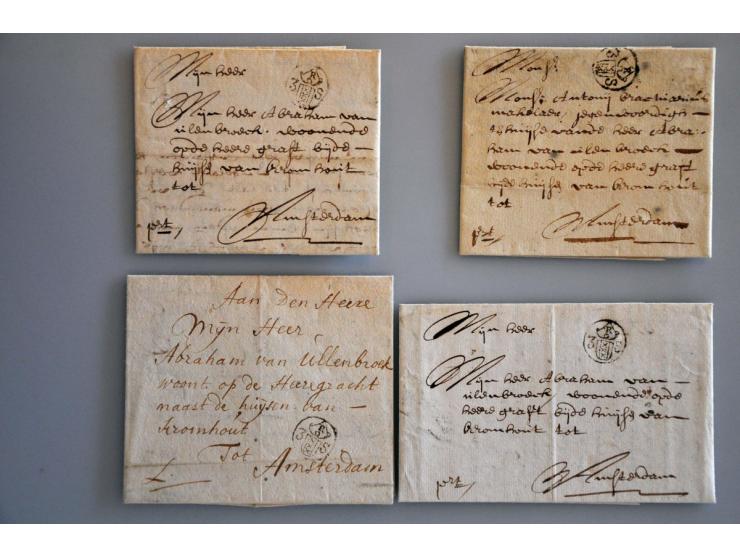 Mijn heer
Mijn heer Abraham van
uilenbroeck. woonende
opde heere graft bijde
huijse van kromhout
tot
Amsterdam
prt
3 S
Monsr.
Monsr. Antonij
makelaer, jegenwoordigh
thuijse vande heer Abra:
ham van uilenbroeck
woonende opde heere graft
bijde huijse van kromhout
tot
Amsterdam
prt
Aan Den Heere
Mijn Heer
Abraham van Ullenbroek
woont op de Heeregracht
naast de huijsen van
Kromhout
Tot
Amsterdam
3 S
Mijn heer
Mijn heer Abraham van
uilenbroeck woonende opde
heere graft bijde huijse van
kromhout tot
Amsterdam
prt
3